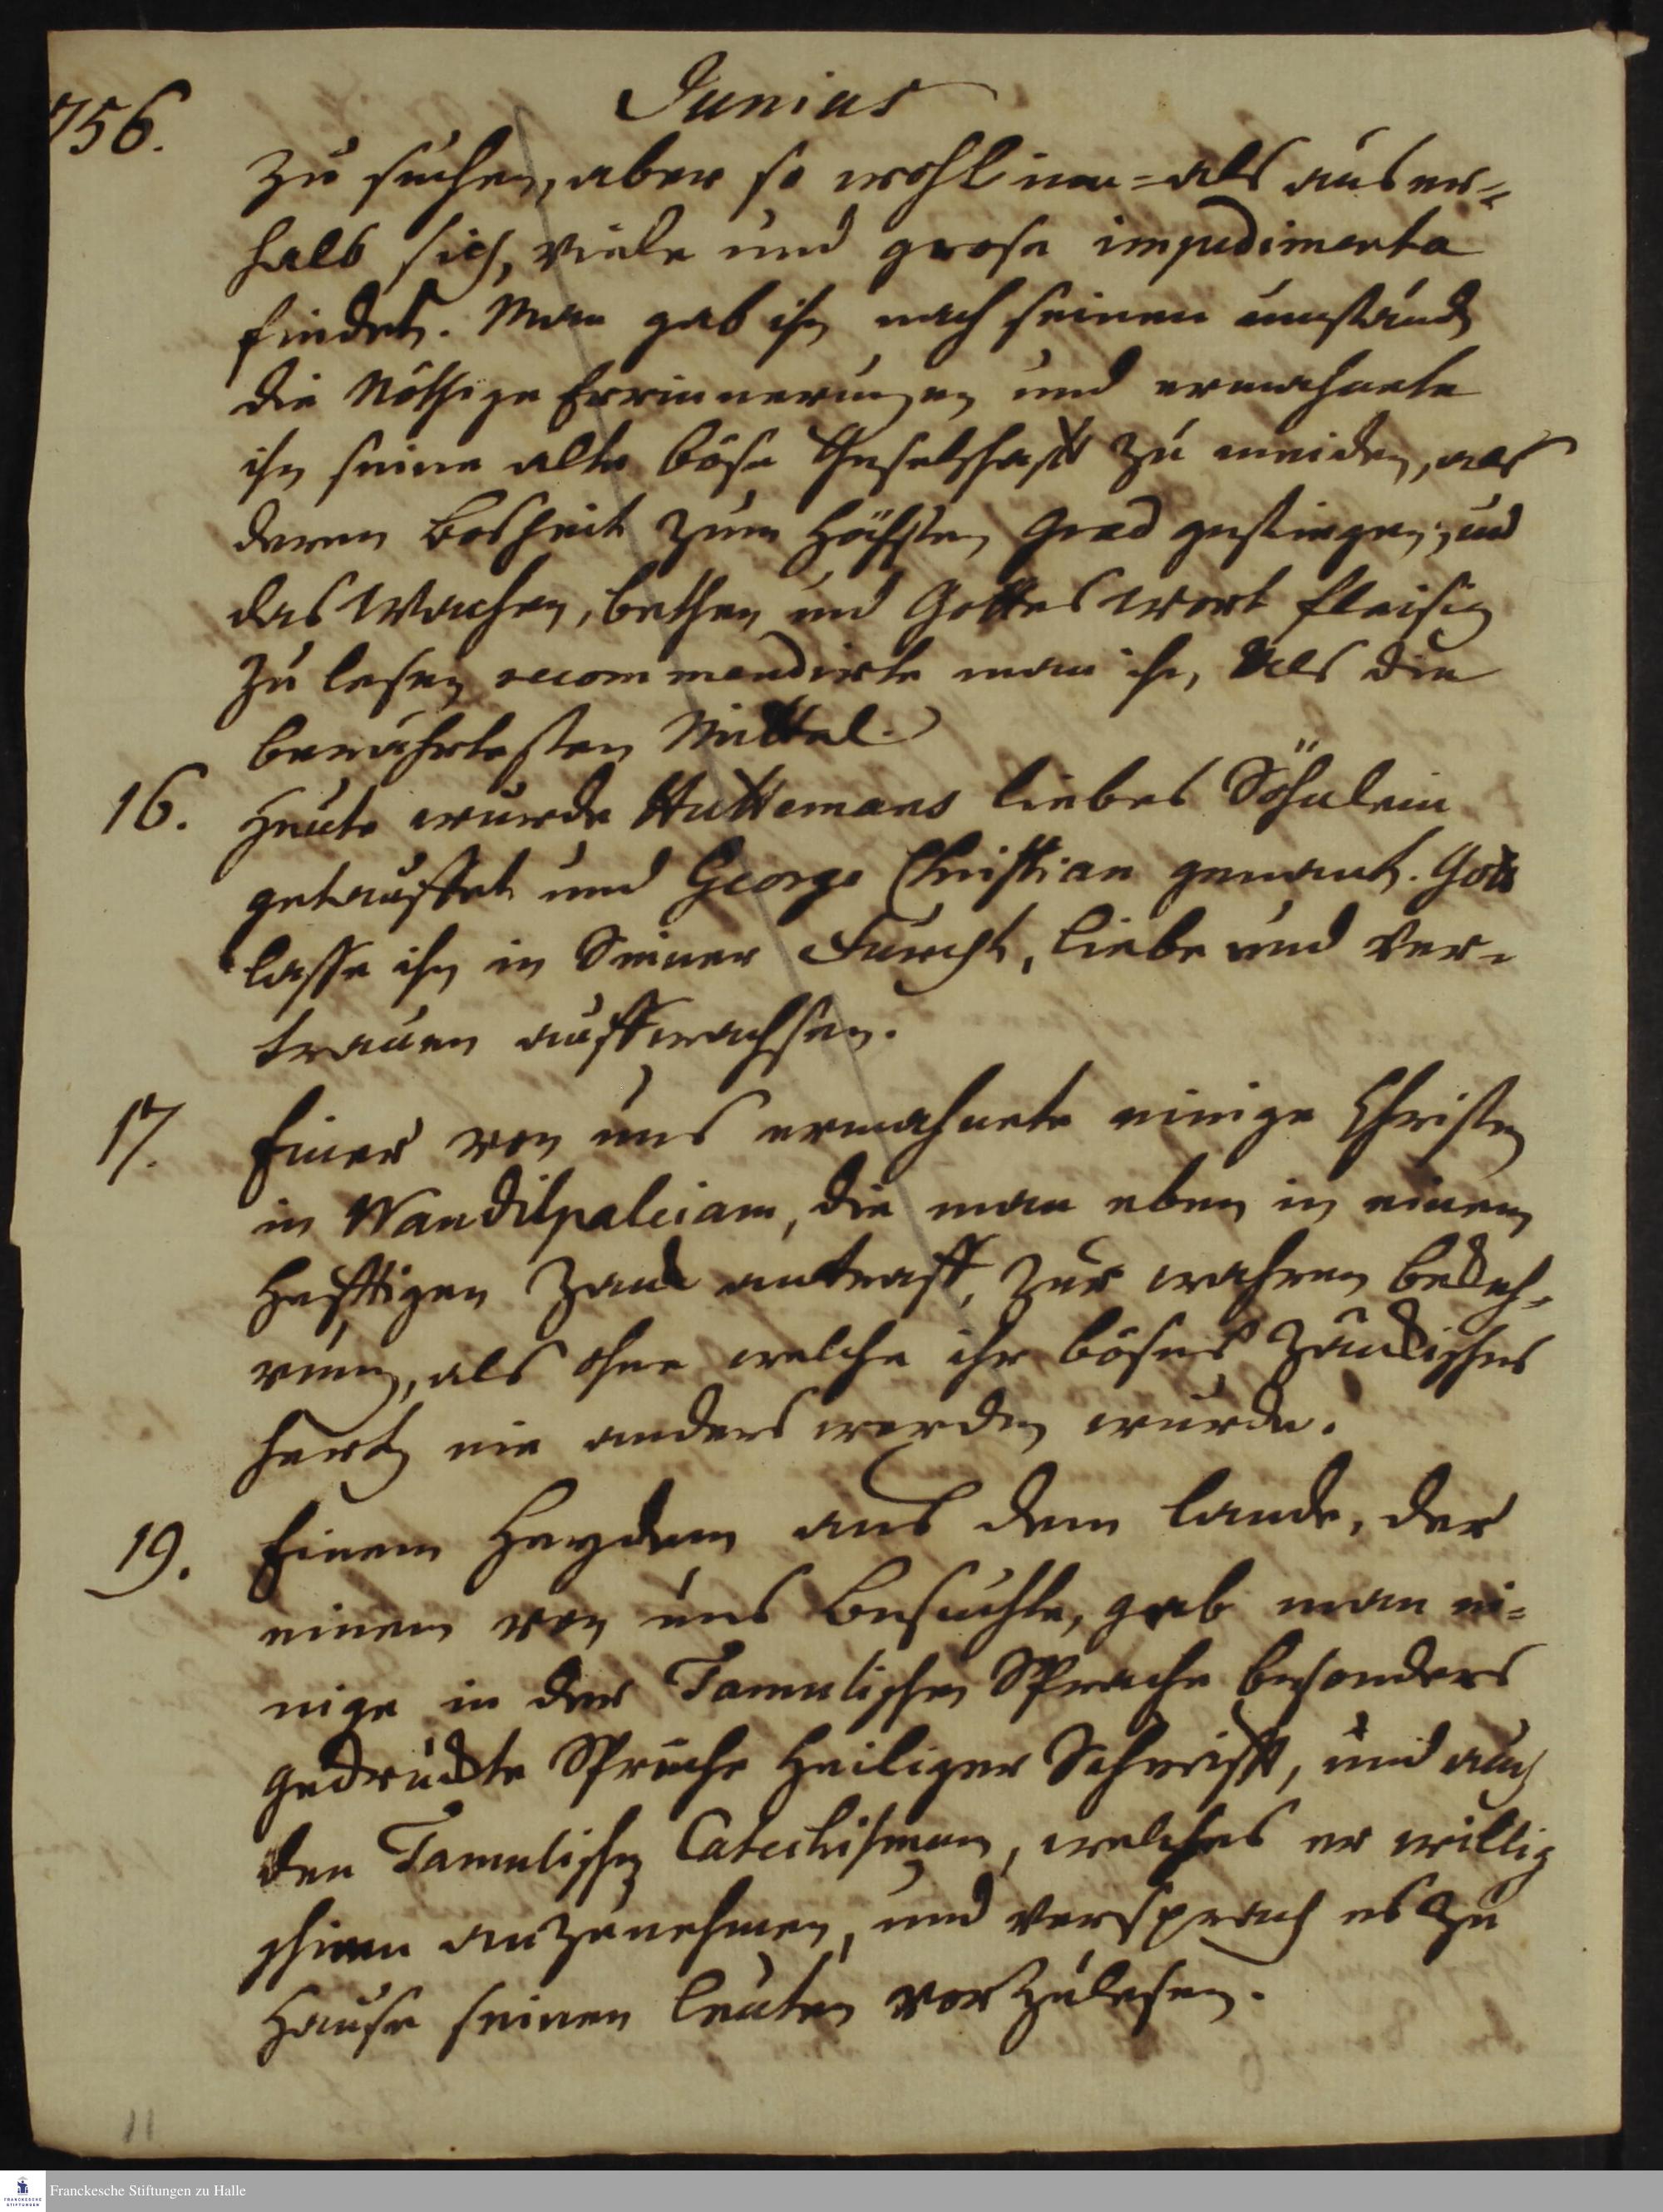 1756.
Junius
zu suchen, aber so wohl inn= als auser=
halb sich, viele und grose impedimenta
findet. Man gab ihn nach seinen umständ
die Nöthige Errinnerungen und ermahnete
ihn seine alte böse Gesellschafft zu meiden, als
deren Bosheit zum Höchsten Grad gestiegen; und
das Wachen, bethen und Gottes Wort fleisig
zu lesen recommendirte man ihn, als die
bewährtesten Mittel.
16. Heute wurde Huttemans liebes Söhnlein
getauffet und George Christian genant. Gott
lasse ihn in Seiner Furcht, liebe und Ver=
trauen auffwachsen.
17. Einer von uns ermahnete einige Christen
in Wandilpaleiam, die man eben in einem
Hefftigen Zank antraff, zur wahren bekeh=
rung, als ohne welche ihr böses Zänckisches
hertz nie anders werden würde.
19. Einem Heyden aus dem lande, der
einen von uns besuchte, gab man ei=
nige in der Tamulischen Sprache besonders
gedruckte Sprüche Heiliger Schrifft, und auch
den Tamulischen Catechismum, welches er willig
schien anzunehmen, und versprach es zu
Hause seinen leuten vorzulesen.
11
Franckesche Stiftungen zu Halle
FRANCKESCHE
STIFTUNGEN